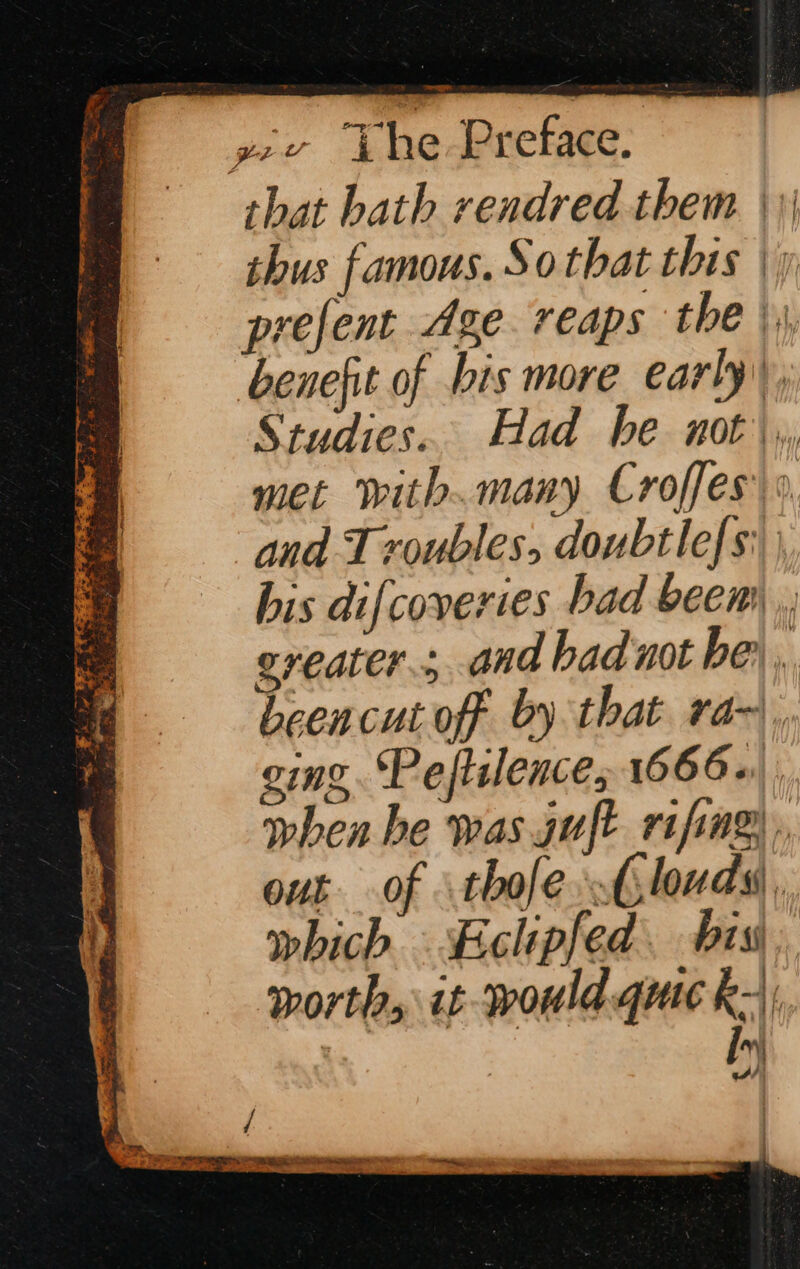 The Preface.
that hath rendred them
thus famous. So that this
preſent Age reaps the
benefit of his more early
Studies. Had he not
met with many Croſſes
and Troubles, doubtleſs
his diſcoveries had been
greater; and had not he
been cut off by that ra-
ging Peſtilence, 1666.
when he was juſt riſing
out of thoſe Clouds
which Eclipſed his
worth, it would quick-
ly